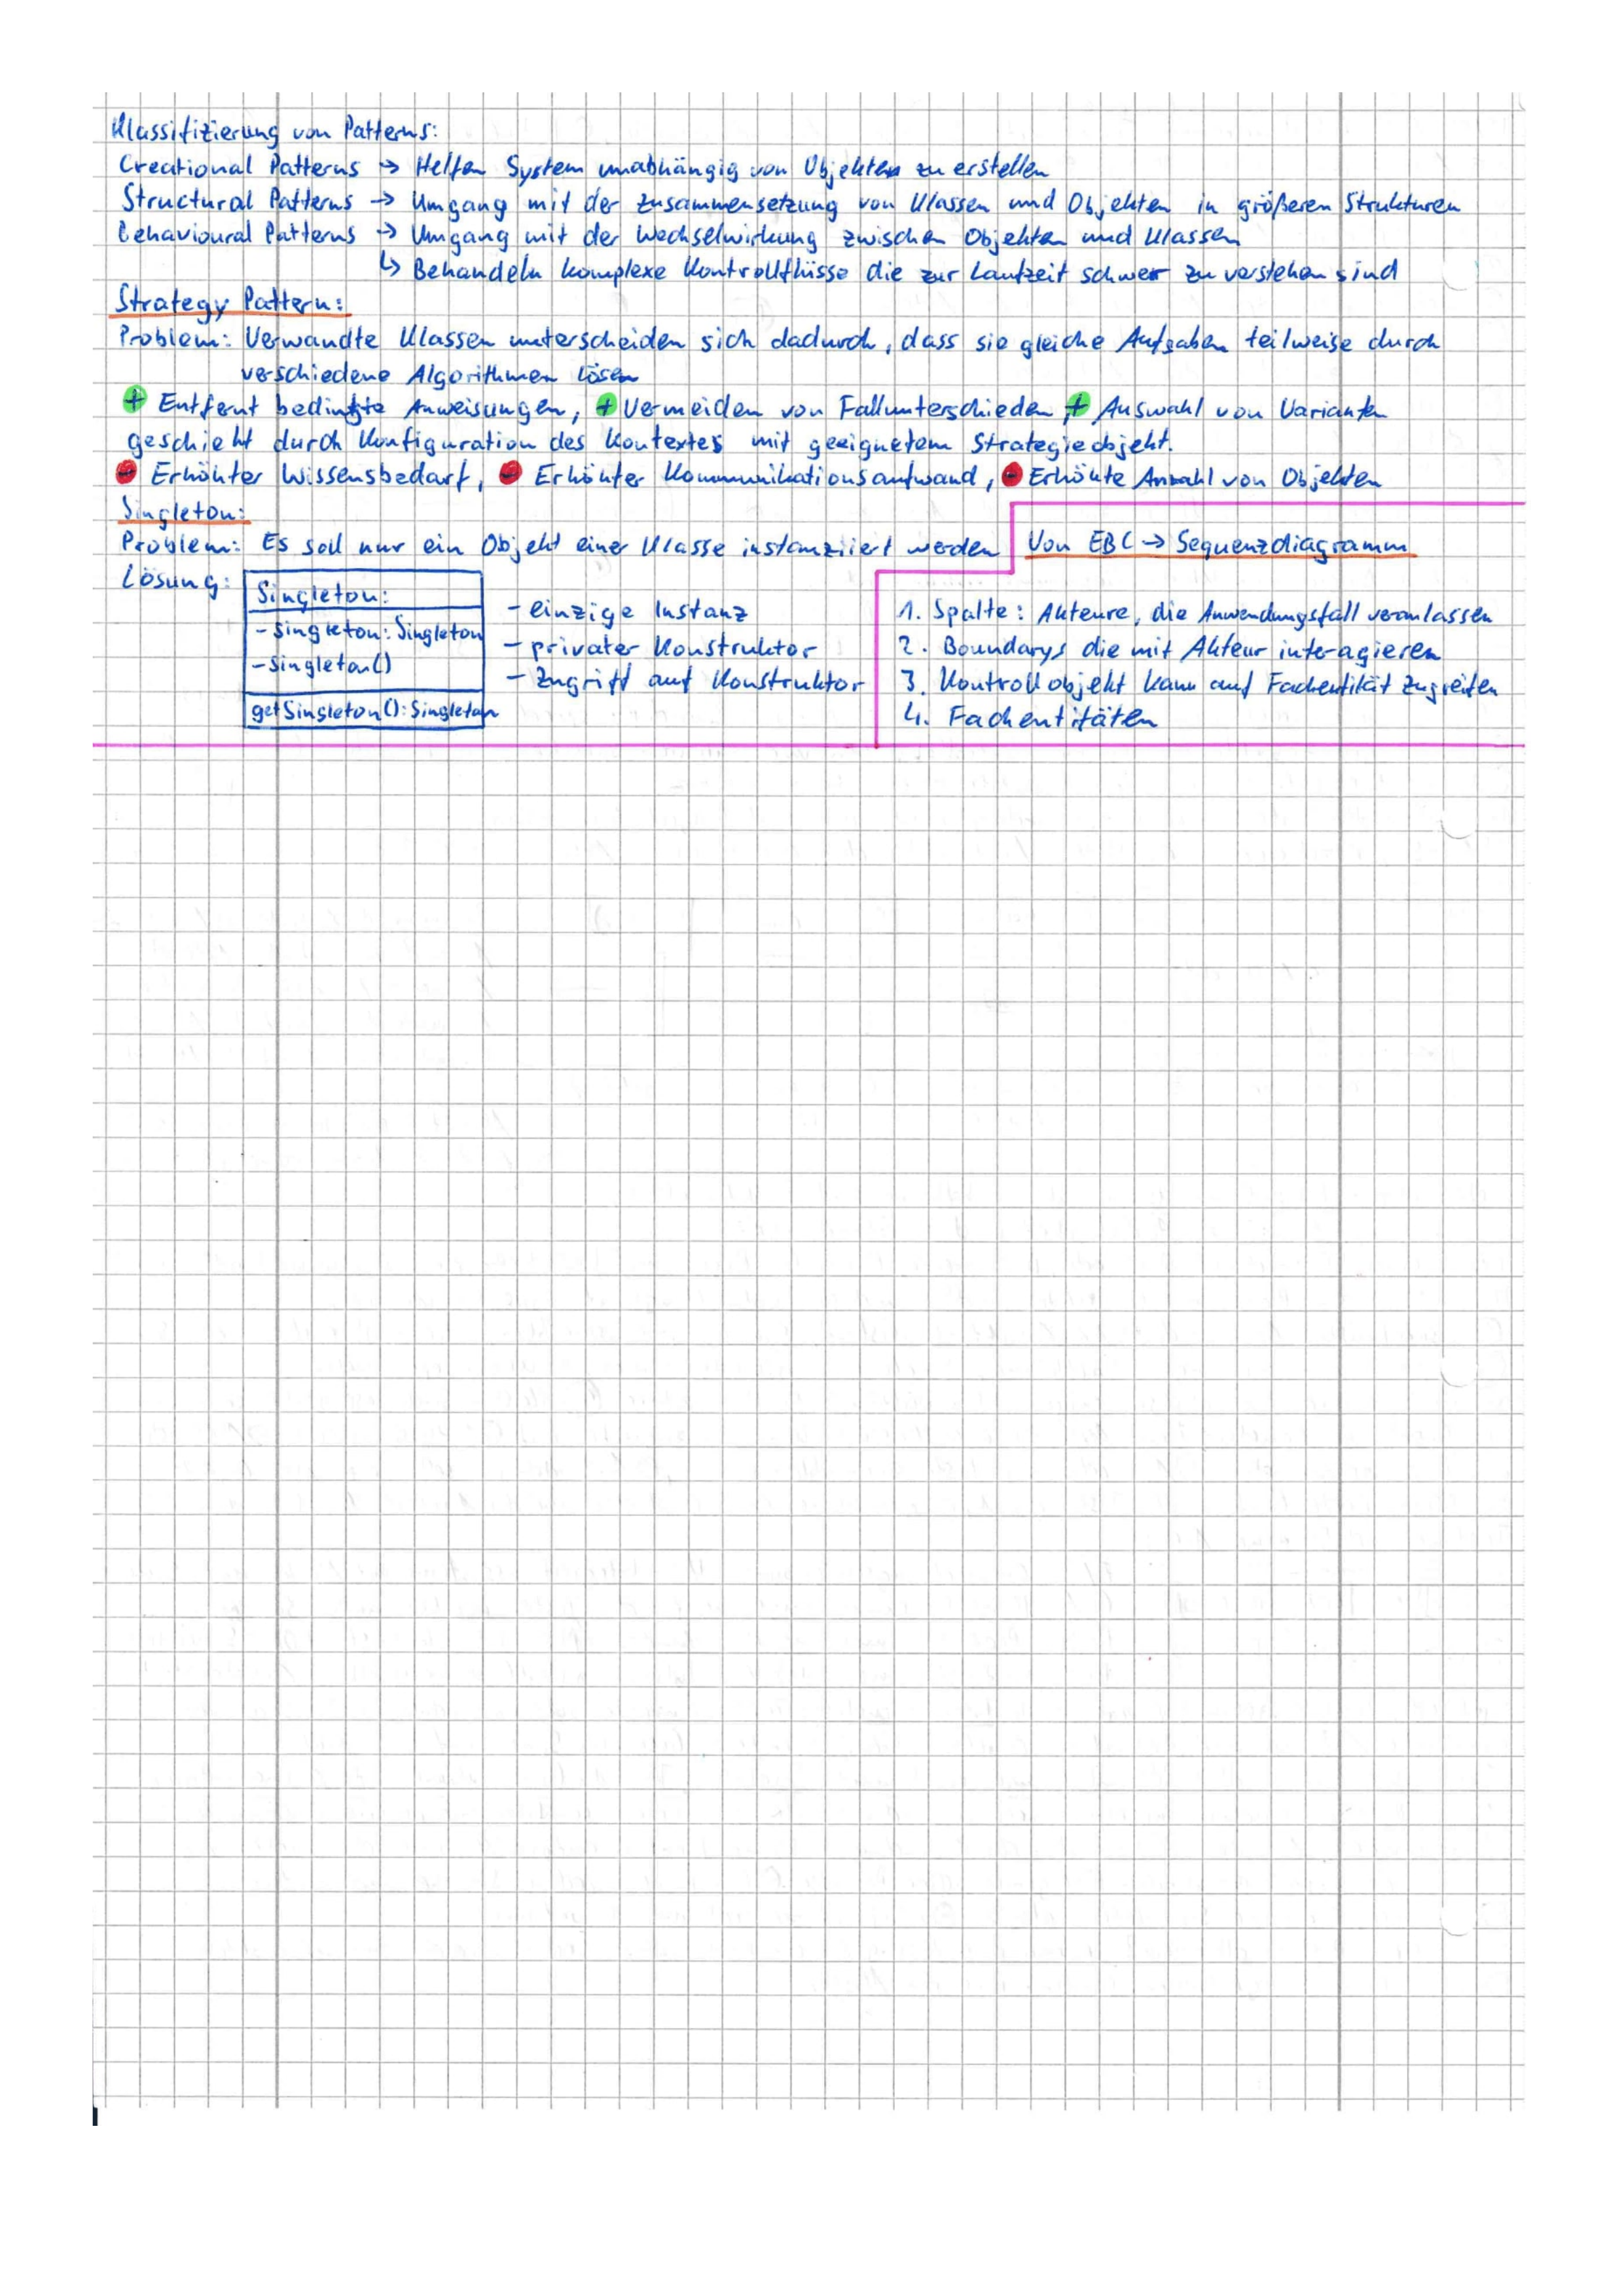 Klassifizierung von Patterns:
Creational Patterns → Helfen System unabhängig von Objekten zu erstellen
Structural Patterns → Umgang mit der Zusammensetzung von Klassen und Objekten in größeren Strukturen
Behavioural Patterns → Umgang mit der Wechselwirkung zwischen Objekten und Klassen
↳ Behandeln komplexe Kontrollflüsse die zur Laufzeit schwer zu verstehen sind
Strategy Pattern:
Problem: Verwandte Klassen unterscheiden sich dadurch, dass sie gleiche Aufgaben teilweise durch
verschiedene Algorithmen lösen
+ Entfernt bedingte Anweisungen, + Vermeiden von Fallunterschieden, + Auswahl von Varianten
geschieht durch Konfiguration des Kontextes mit geeignetem Strategieobjekt.
- Erhöhter Wissensbedarf, - Erhöhter Kommunikationsaufwand, - Erhöhte Anzahl von Objekten
Singleton:
Problem: Es soll nur ein Objekt einer Klasse instanziiert werden
Lösung:
Singleton:
- singleton: Singleton
- singleton()
getSingleton(): Singleton
- einzige Instanz
- privater Konstruktor
- Zugriff auf Konstruktor
Von EBC → Sequenzdiagramm
1. Spalte: Akteure, die Anwendungsfall veranlassen
2. Boundarys die mit Akteur interagieren
3. Kontrollobjekt kann auf Fachentität zugreifen
4. Fachentitäten